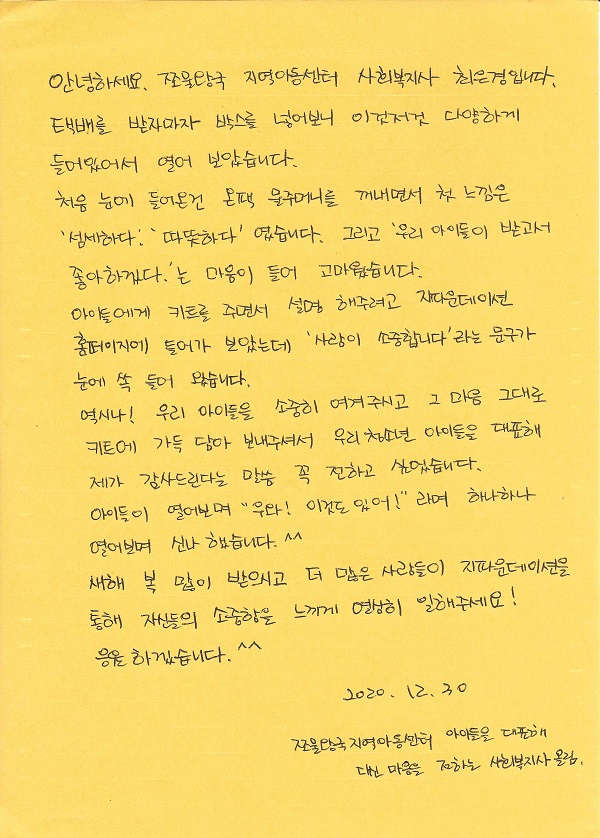 안녕하세요. 쪼물왕국 지역아동센터 사회복지사 최은경입니다.
택배를 받자마자 박스를 넣어보니 이것저것 다양하게
들어있어서 열어 보았습니다.
처음 눈에 들어온건 온팩 물주머니를 꺼내면서 첫 느낌은
'섬세하다'. '따뜻하다' 였습니다. 그리고 '우리 아이들이 받고서
좋아하겠다.'는 마음이 들어 고마웠습니다.
아이들에게 키트를 주면서 설명 해주려고 지파운데이션
홈페이지에 들어가 보았는데 '사람이 소중합니다'라는 문구가
눈에 쏙 들어 왔습니다.
역시나! 우리 아이들을 소중히 여겨주시고 그 마음 그대로
키트에 가득 담아 보내주셔서 우리 청소년 아이들을 대표해
제가 감사드린다는 말씀 꼭 전하고 싶었습니다.
아이들이 열어보며 "우와! 이것도 있어!" 라며 하나하나
열어보며 신나 했습니다.^^
새해 복 많이 받으시고 더 많은 사람들이 지파운데이션을
통해 자신들의 소중함을 느끼게 열심히 일해주세요!
응원 하겠습니다.^^
2020. 12. 30
쪼물왕국지역아동센터 아이들을 대표해
대신 마음을 전하는 사회복지사 올림.